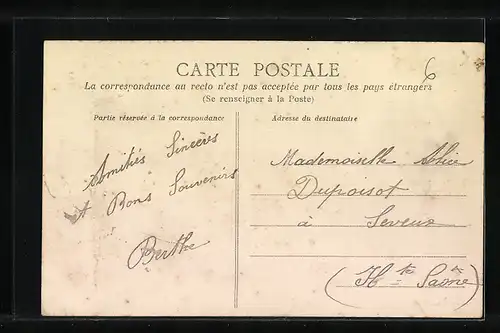 6
CARTE POSTALE
La correspondance au recto n'est pas acceptée par tous les pays étrangers
(Se renseigner à la Poste)
Partie réservée à la correspondance
Adresse du destinataire
Amitiés Sincères
et Bons Souvenirs
Berthe
Mademoiselle Alice
Dupoisot
à Seveux
(Hte Saône)